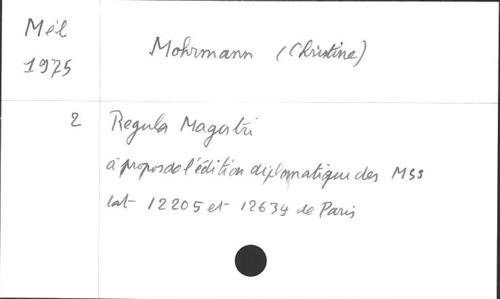 Mél
1975
Mohrmann (Christine)
2
Regula Magistri
à propos de l'édition diplomatique des MSS
lat 12205 et 12634 de Paris